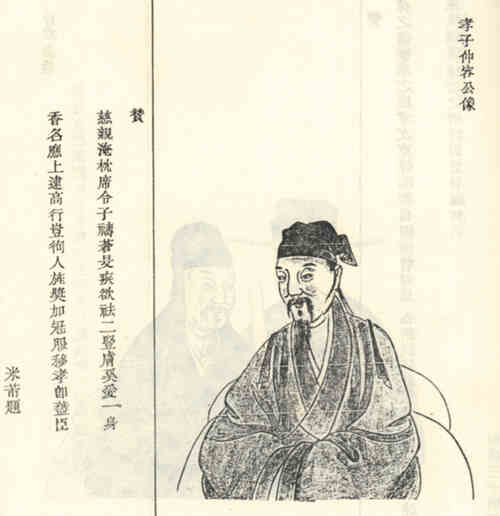 孝子仲容公像
贊
慈親淹枕席令子禱蒼旻疾欲祛二豎膚奚愛一身
香名應上達高行豈狥人旌獎加冠服移孝卽藎臣
米芾題